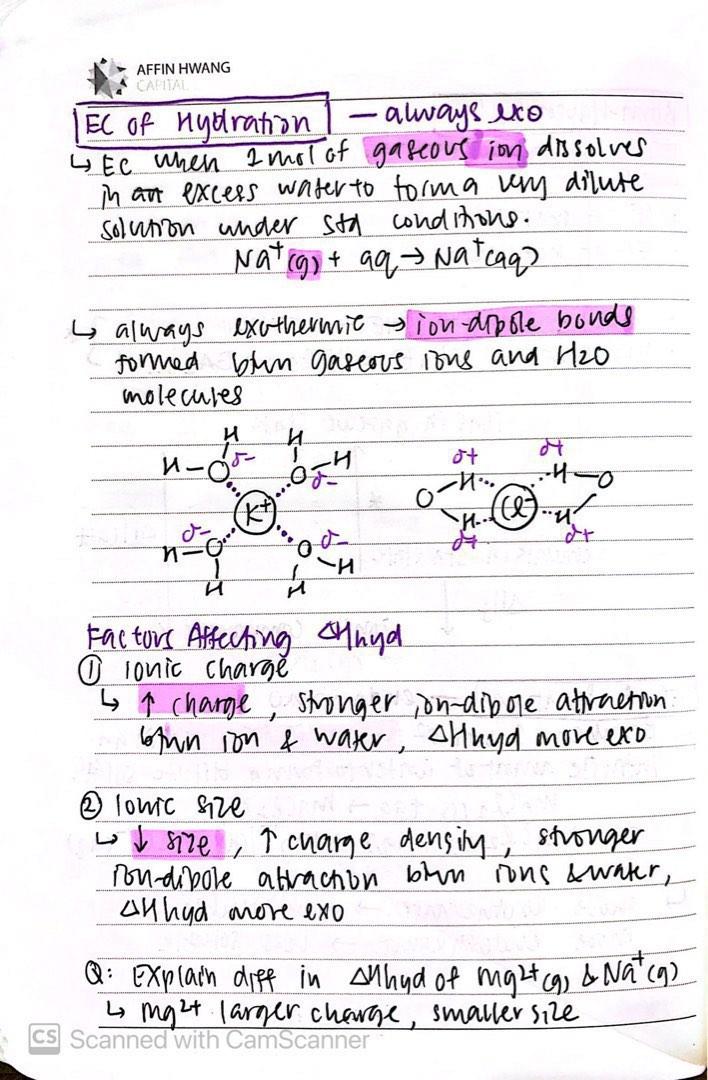 AFFIN HWANG
CAPITAL
EC of Hydration — always exo
↳ EC when 1 mol of gaseous ion dissolves
in excess water to form a very dilute
solution under std conditions.
Na⁺(g) + aq → Na⁺(aq)
↳ always exothermic → ion-dipole bonds
formed btwn gaseous ions and H2O
molecules
H H
H-O δ- O-H δ-
K⁺
δ- H-O O-H δ-
H H
δ+ δ+
O H H O
Cl⁻
H H
δ+ δ+
Factors Affecting ΔHhyd
① Ionic charge
↳ ↑ charge, stronger ion-dipole attraction
btwn ion & water, ΔHhyd more exo
② Ionic size
↳ ↓ size, ↑ charge density, stronger
ion-dipole attraction btwn ions & water,
ΔHhyd more exo
Q: Explain diff in ΔHhyd of Mg²⁺(g) & Na⁺(g)
↳ Mg²⁺ larger charge, smaller size
CS Scanned with CamScanner